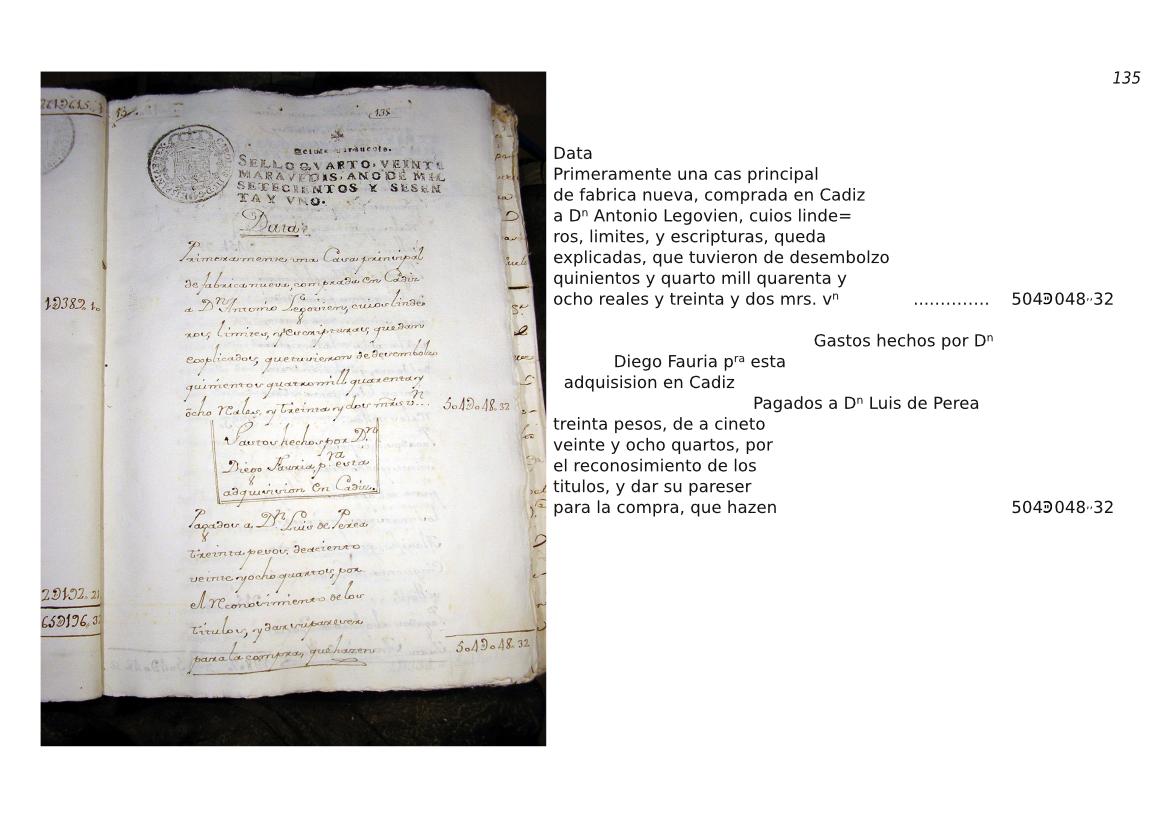 135
265196153
13
135
Sesenta maravedis.
SELLO QVARTO, VEINTE
MARAVEDIS, AÑO DE MIL
SETECIENTOS Y SESEN
TA Y VNO.
Data
Primeramente una Casa principal
de fabrica nueva, comprada en Cadiz
a Dⁿ Antonio Legovien, cuios linde
ros, limites, y escripturas, quedan
explicados, que tuvieron de desembolzo
quinientos quatro mill quarenta y
ocho reales, y treinta y dos mrs. vⁿ... 504Ͽ048.32
Gastos hechos por Dⁿ
Diego Fauria, pʳᵃ esta
adquisision en Cadiz.
Pagados a Dⁿ Luis de Perea
treinta pesos, de aciento
veinte y ocho quartos, por
el reconosimiento de los
titulos, y dar su pareser
para la compra, que hazen 504Ͽ048.32
Data
Primeramente una cas principal
de fabrica nueva, comprada en Cadiz
a Dⁿ Antonio Legovien, cuios linde=
ros, limites, y escripturas, queda
explicadas, que tuvieron de desembolzo
quinientos y quarto mill quarenta y
ocho reales y treinta y dos mrs. vⁿ .............. 504Ͽ048··32
Gastos hechos por Dⁿ
Diego Fauria pʳᵃ esta
adquisision en Cadiz
Pagados a Dⁿ Luis de Perea
treinta pesos, de a cineto
veinte y ocho quartos, por
el reconosimiento de los
titulos, y dar su pareser
para la compra, que hazen 504Ͽ048··32